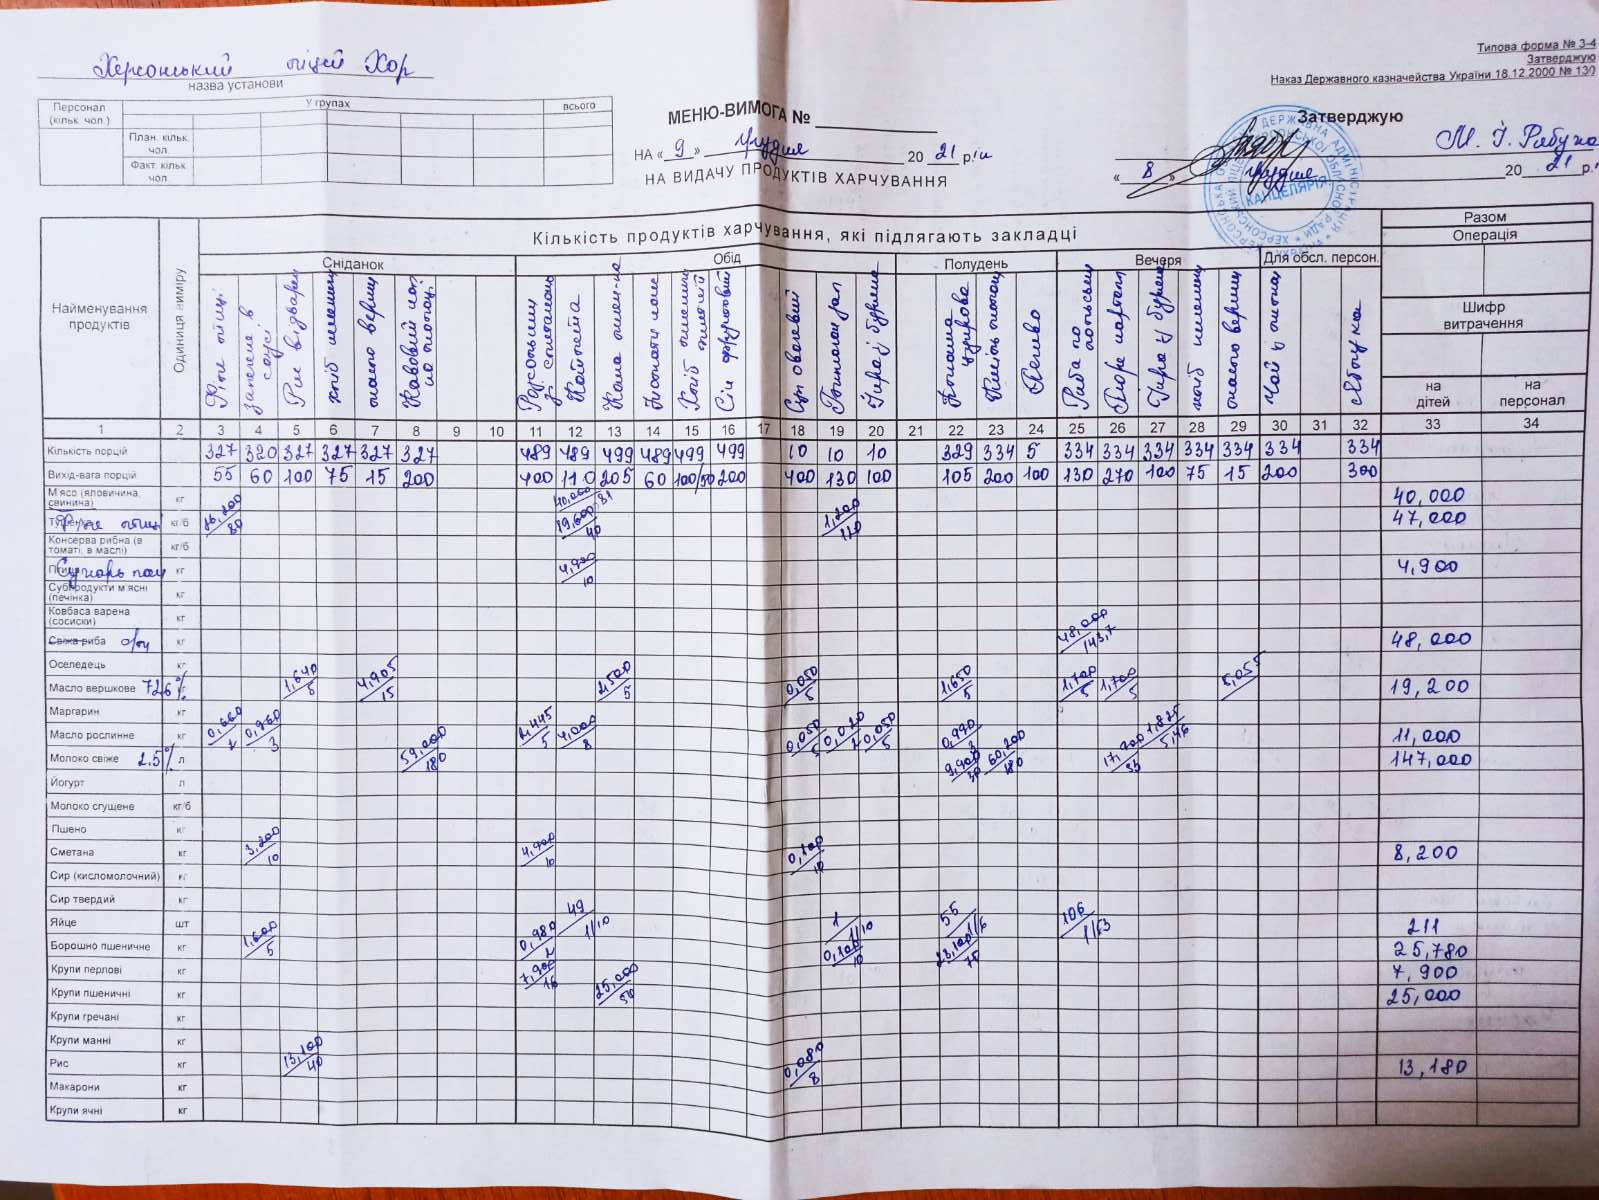 Типова форма № З-4
Затверджую
Наказ Державного казначейства України 18.12.2000 № 130
Херсонський ліцей Хор
назва установи
Персонал (кільк. чол.) У групах всього
План. кільк. чол.
Факт. кільк. чол.
МЕНЮ-ВИМОГА №
НА «9» грудня 20 21 р.
НА ВИДАЧУ ПРОДУКТІВ ХАРЧУВАННЯ
Затверджую
М. І. Рябуха
«8» грудня 20 21 р.
КАНЦЕЛЯРІЯ
Найменування продуктів
Одиниця виміру
Кількість продуктів харчування, які підлягають закладці
Разом
Операція
Сніданок Обід Полудень Вечеря Для обсл. персон.
Шифр витрачення
на дітей на персонал
Філе птиці
запечене в соусі
Рис відварен
хліб
масло вершк
Кавовий нап на молоці
Котлета
Каша
Сік фруктовий
Суп овочевий
молочна
Печиво
Риба по польськи
Пюре картопл
Ікра з буряка
масло вершк
Чай з лимон
яблука
1 2 3 4 5 6 7 8 9 10 11 12 13 14 15 16 17 18 19 20 21 22 23 24 25 26 27 28 29 30 31 32 33 34
Кількість порцій 327 320 327 327 327 327 489 489 499 489 499 499 10 10 10 329 334 5 334 334 334 334 334 334 334
Вихід-вага порцій 55 60 100 75 15 200 400 110 205 60 100/50 200 400 130 100 105 200 100 130 270 100 75 15 200 300
М'ясо (яловичина, свинина) кг 40,000 81 40,000
Філе птиці кг/б 26,200/80 19,600/40 1,200/120 47,000
Консерва рибна (в томаті, в маслі) кг/б
Сухарь пан кг 4,900/10 4,900
Субпродукти м'ясні (печінка) кг
Ковбаса варена (сосиски) кг
Свіжа риба с/м кг 48,000/143,7 48,000
Оселедець кг
Масло вершкове 72,6% кг 1,640/5 4,905/15 2,500/5 0,050/5 1,650/5 1,700/5 1,700/5 5,055 19,200
Маргарин кг
Масло рослинне кг 0,660/2 0,960/3 2,445/5 4,000/8 0,050/5 0,020/2 0,050/5 0,990/3 1,825/5,46 11,000
Молоко свіже 2.5% л 59,000/180 9,900/30 60,200/180 17,900/53 147,000
Йогурт л
Молоко сгущене кг/б
Пшено кг
Сметана кг 3,200/10 4,900/10 0,100/10 8,200
Сир (кисломолочний) кг
Сир твердий кг
Яйце шт 49 1/10 1 1/10 55 1/6 106 1/63 211
Борошно пшеничне кг 1,600/5 0,980/2 0,100/10 23,100/75 25,780
Крупи перлові кг 7,900/16 7,900
Крупи пшеничні кг 25,000/50 25,000
Крупи гречані кг
Крупи манні кг
Рис кг 13,100/40 0,080/8 13,180
Макарони кг
Крупи ячні кг